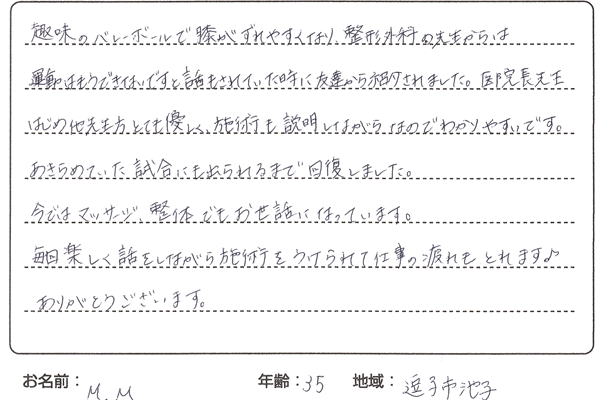 趣味のバレーボールで膝がずれやすくなり、整形外科の先生からは
運動はもうできないですと話をされていた時に友達から紹介されました。院長先生
はじめ他先生方とても優しく、施術も説明しながらなのでわかりやすいです。
あきらめていた試合にも出られるまで回復しました。
今ではマッサージ、整体でもお世話になっています。
毎回楽しく話をしながら施術をうけられて仕事の疲れもとれます♪
ありがとうございます。
お名前： M.M 年齢：35 地域：逗子市池子